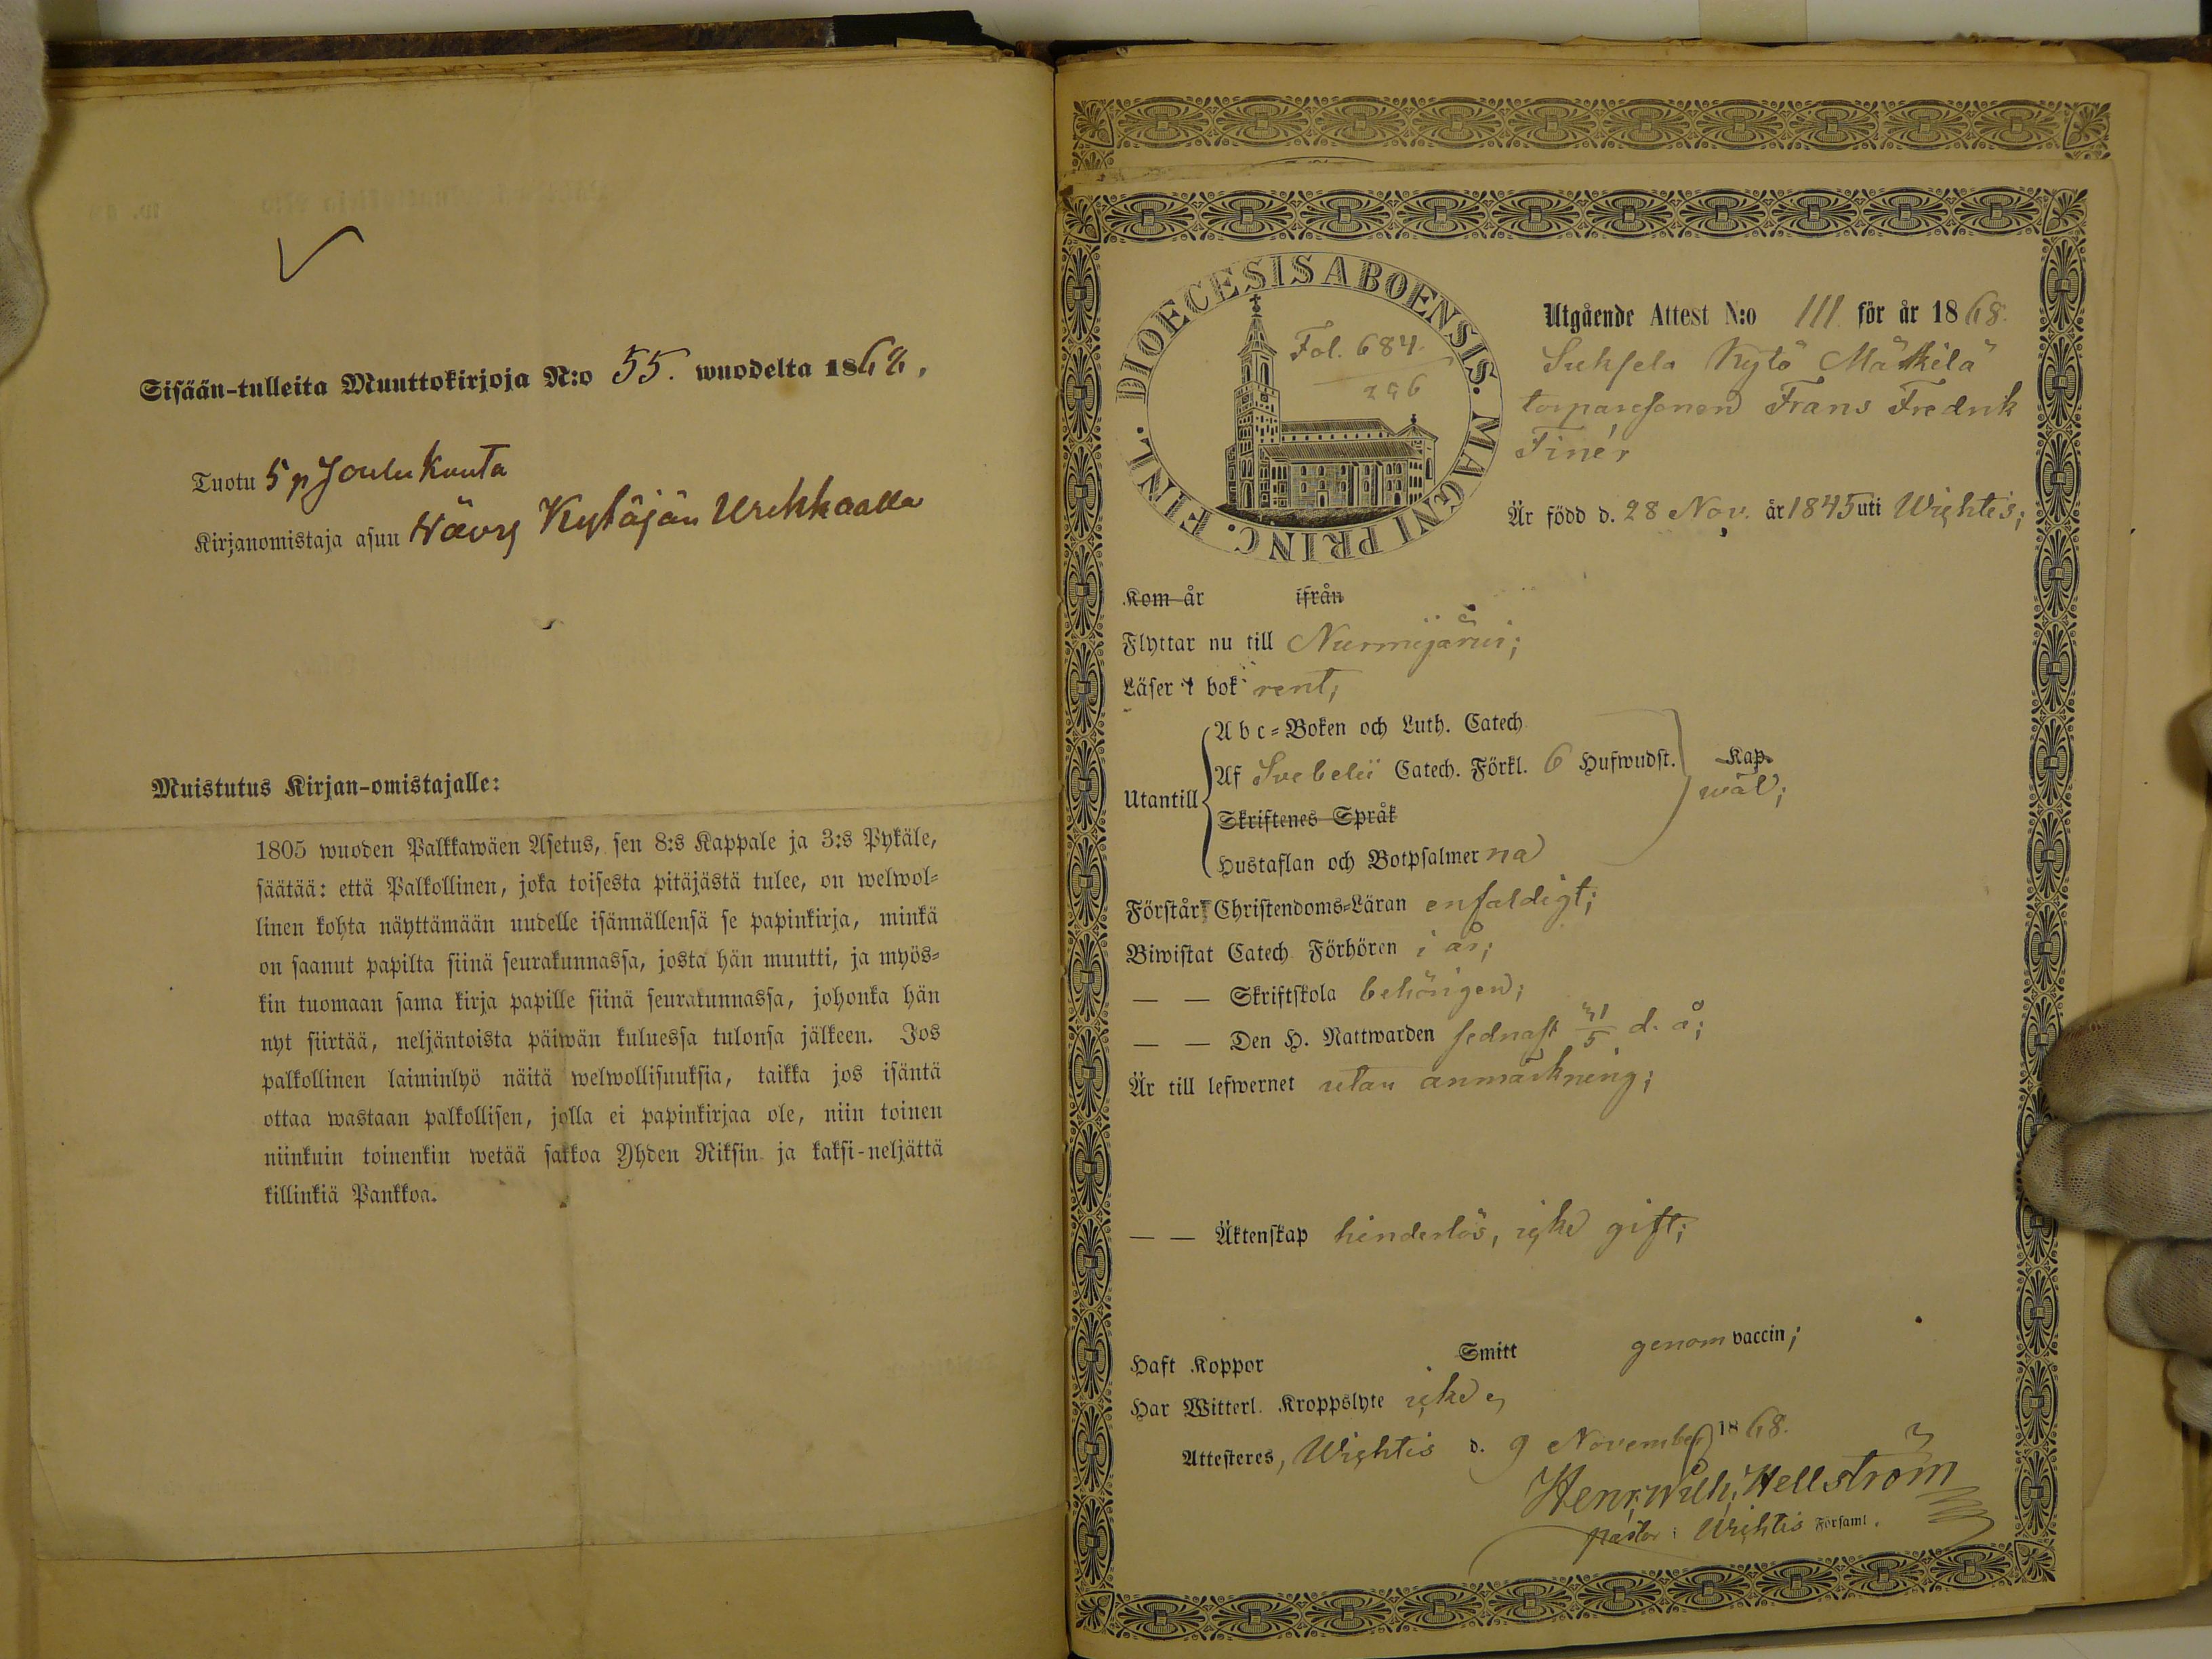 Sisään-tulleita Muuttokirjoja N:o 55. wuodelta 1868.
Tuotu 5 p Joulukuuta
Kirjanomistaja asuu Kytäjän Urikkaalla
Muistutus Kirjan-omistajalle:
1805 wuoden Palkkawäen Asetus, sen 8:s Kappale ja 3:s Pykäle,
säätää: että Palkollinen, joka toisesta pitäjästä tulee, on welwol=
linen kohta näyttämään uudelle isännällensä se papinkirja, minkä
on saanut papilta siinä seurakunnassa, josta hän muutti, ja myös=
kin tuomaan sama kirja papille siinä seurakunnassa, johonka hän
nyt siirtää, neljäntoista päiwän kuluessa tulonsa jälkeen. Jos
palkollinen laiminlyö näitä welwollisuuksia, taikka jos isäntä
ottaa wastaan palkollisen, jolla ei papinkirjaa ole, niin toinen
niinkuin toinenkin wetää sakkoa Yhden Riksin ja kaksi-neljättä
killinkiä Pankkoa.
DIOECESIS ABOENSIS. MAGNI PRINC. FINL.
Fol. 684.
296
Utgående Attest N:o 111 för år 1868.
Suksela Kytö Mäkkilä
torparesonen Frans Fredrik
Finér
Är född d. 28 Nov. år 1845 uti Wichtis;
Kom år ifrån
Flyttar nu till Nurmijärvi;
Läser i bok rent;
Utantill
A b c = Boken och Luth. Catech.
Af Svebelii Catech. Förkl. 6 Hufwudst. Kap.
wäl;
Skriftenes Språk
Hustaflan och Botpsalmerna
Förstår Christendoms=Läran enfaldigt;
Biwistat Catech. Förhören i år;
— — Skriftskola behörigen;
— — Den H. Nattwarden sednast 31/5 d. å;
Är till lefwernet utan anmärkning;
— — Äktenskap hinderlös, icke gift;
Haft Koppor Smitt genom vaccin;
Har Witterl. Kroppslyte icke
Attesteres, Wichtis d. 9 November 1868.
Henr. Wilh. Hellström
Pastor i Wichtis Församl.